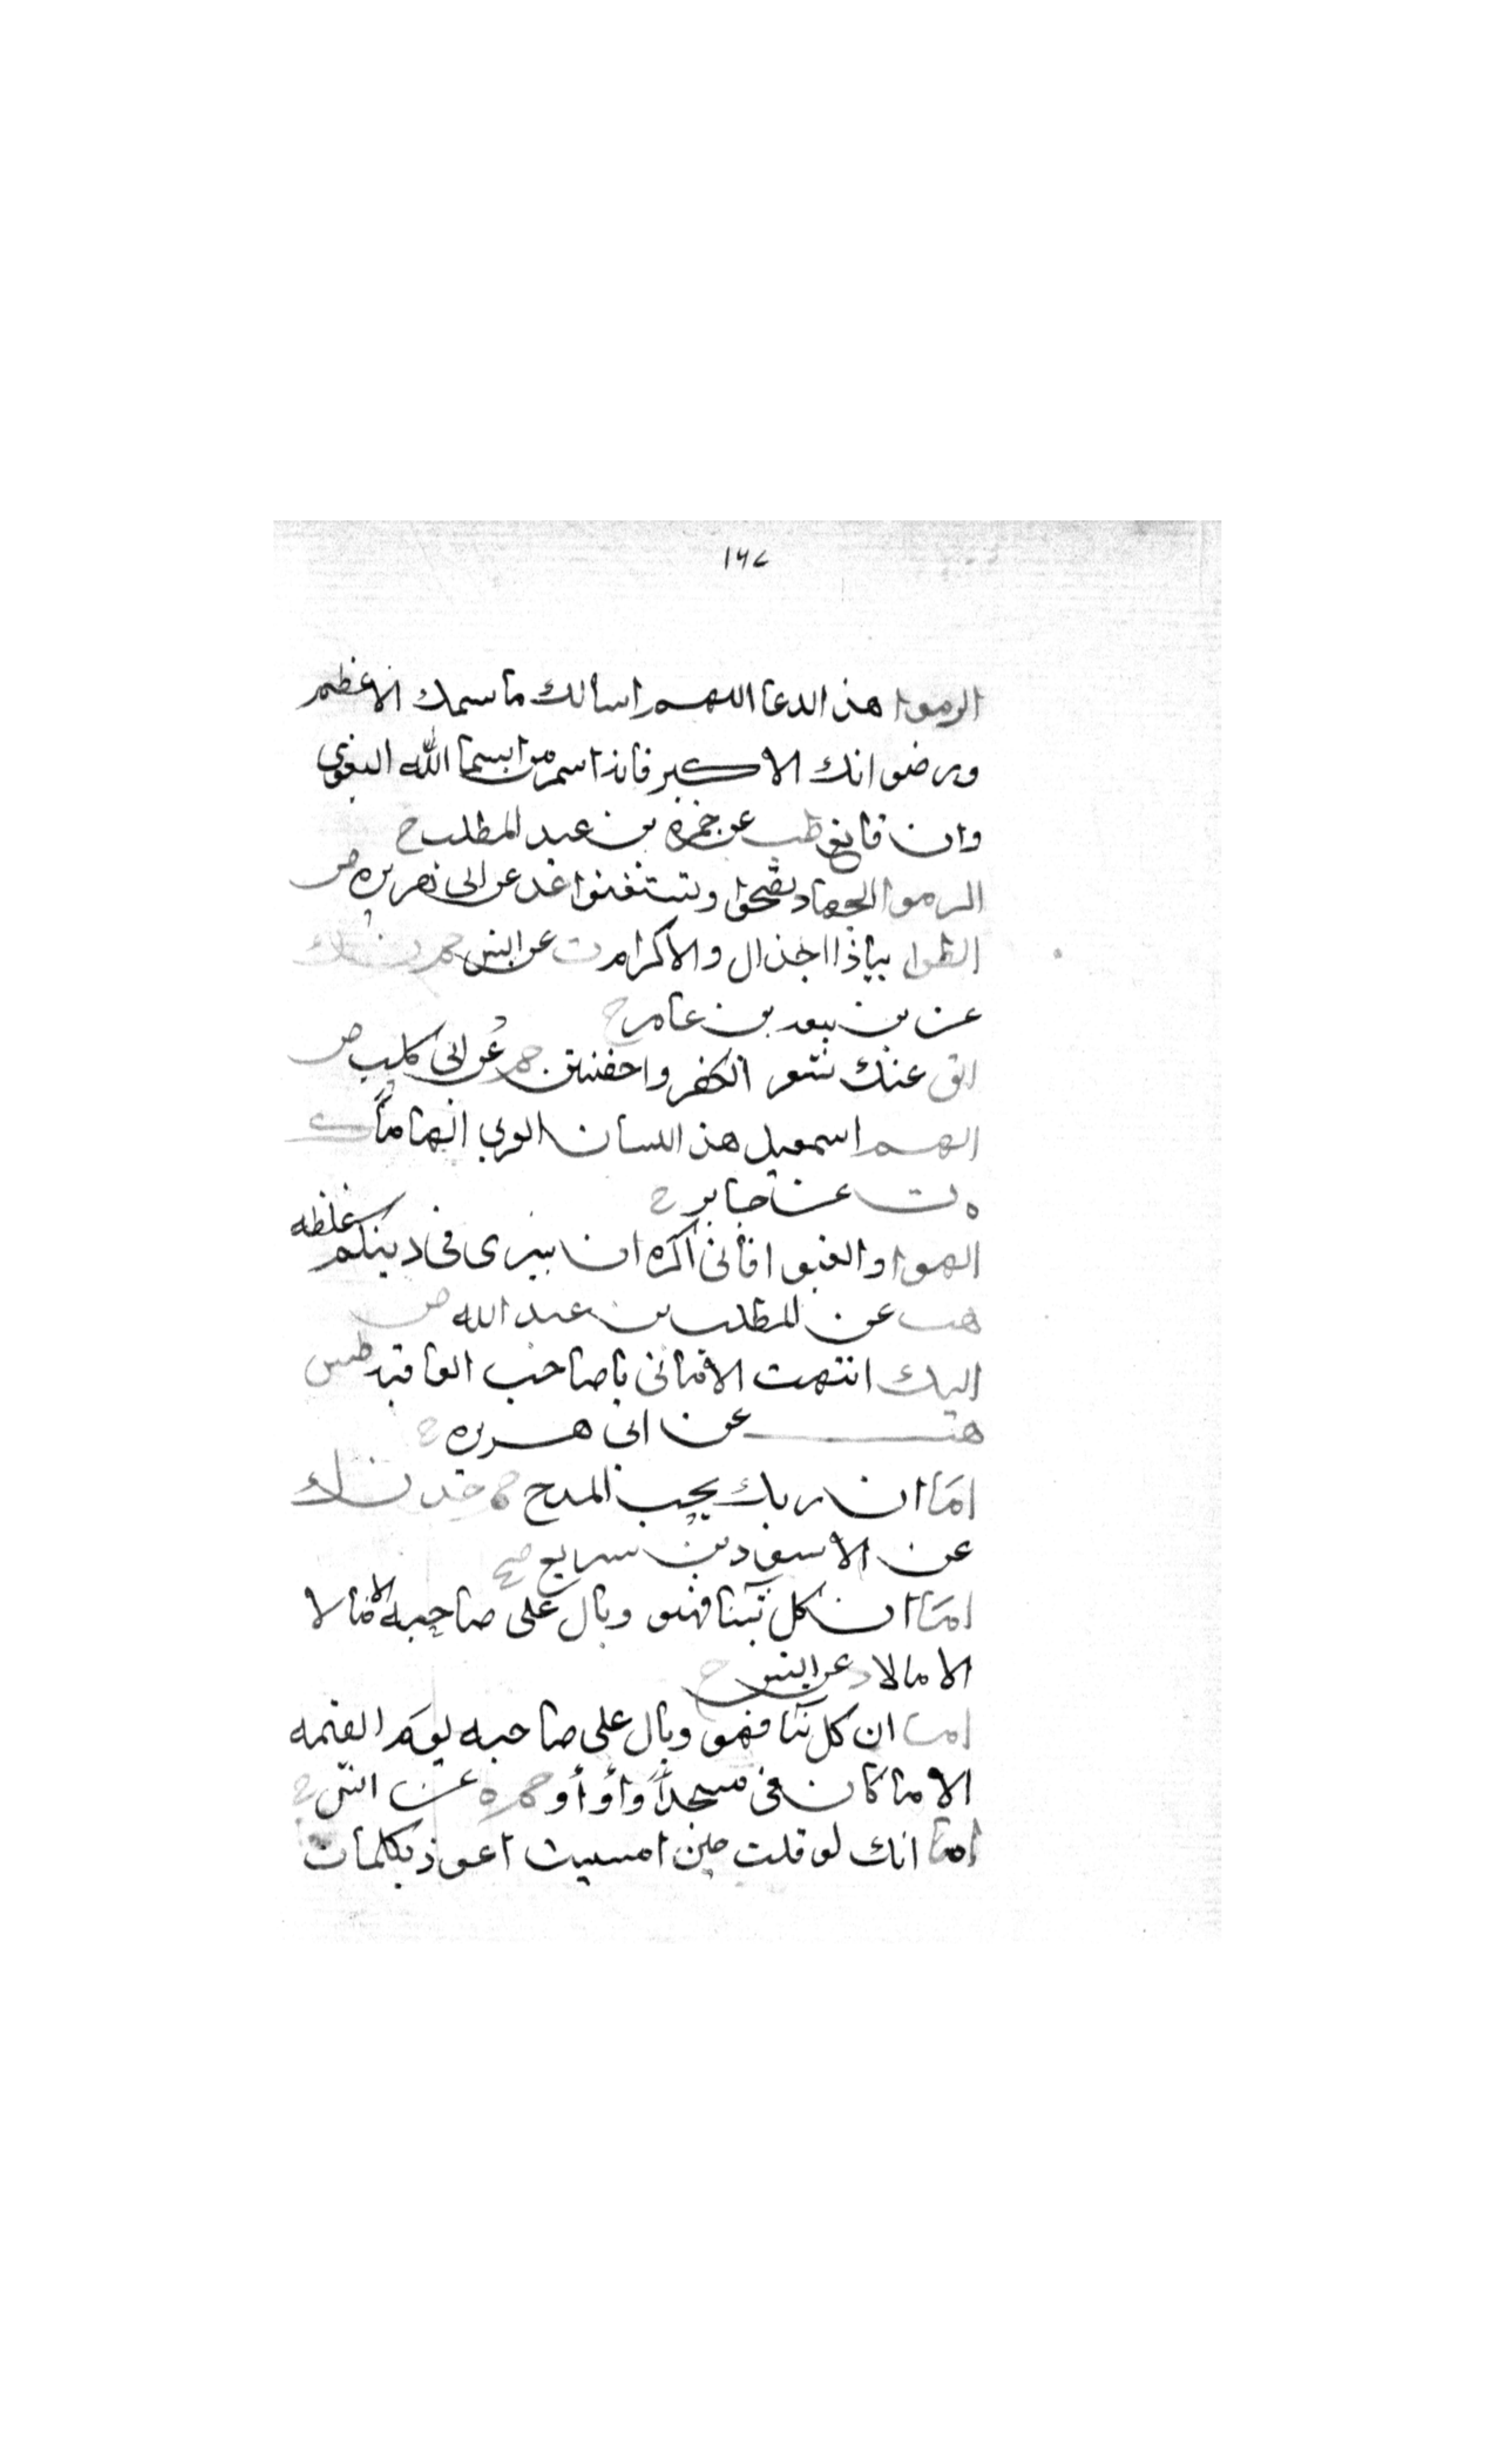 ١٦٧
الزموا هذا الدعا اللهم اسالك باسمك الاعظم
ورضوانك الاكبر فانه اسم من اسما الله البغوي
وابن قانع طب عن حمزه بن عبد المطلب ح
الزموا الجهاد تصحوا وتستغنوا عد عن ابي هريره ض
الظوا بياذا الجلال والاكرام ت عن انس حم ن ك
عن بن عامر ح
الق عنك شعر الكفر واختتن حم عن ابي كليب ض
الهم اسمعيل هذا اللسان العربي الهاما ك
هب عن جابر ح
الهوا والعبوا فاني اكره ان يرى في دينكم غلظه
هب عن المطلب بن عبد الله ض
اليك انتهت الاماني يا صاحب العافيه طس
هب عن ابي هريره ح
اما ان ربك يحب المدح حم خد ن ك
عن الاسود بن سريع صح
اما ان كل بنا فهو وبال على صاحبه الا مالا
الا مالا د عن انس ح
اما ان كل بنا فهو وبال على صاحبه يوم القيمه
الا ما كان في مسجد او او او حم ه عن انس ح
اما انك لو قلت حين امسيت اعوذ بكلمات